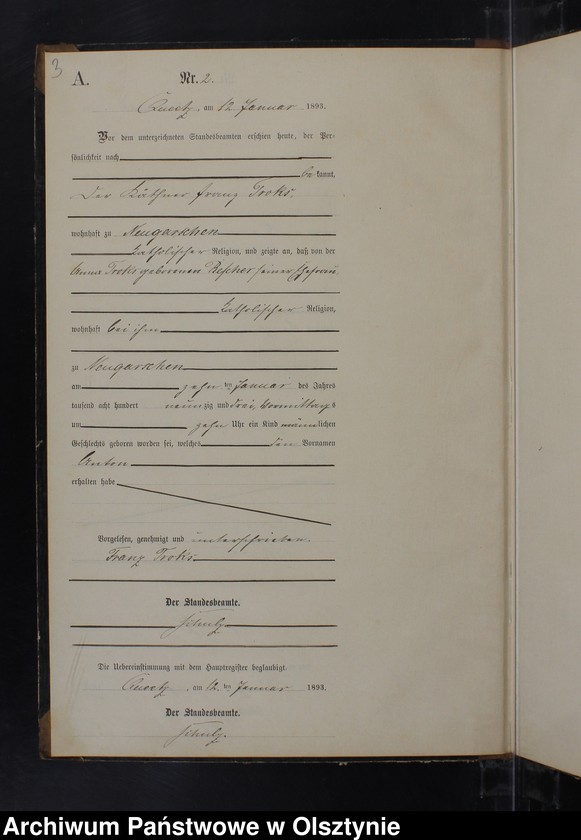 3
A. Nr. 2.
Queetz, am 12 Januar 1893.
Vor dem unterzeichneten Standesbeamten erschien heute, der Per-
sönlichkeit nach
be kannt,
Der Käthner Franz Troks.
wohnhaft zu Neugarschen
katholischer Religion, und zeigte an, daß von der
Anna Troks geborenen seiner Ehefrau
katholischer Religion,
wohnhaft bei ihm
zu Neugarschen
am zehn ten Januar des Jahres
tausend acht hundert neunzig und drei, Vormittags
um zehn Uhr ein Kind männlichen
Geschlechts geboren worden sei, welches den Vornamen
Anton
erhalten habe
Vorgelesen, genehmigt und unterschrieben.
Franz Troks.
Der Standesbeamte.
Schulz
Die Uebereinstimmung mit dem Hauptregister beglaubigt.
Queetz, am 12. ten Januar 1893.
Der Standesbeamte.
Schulz.
Archiwum Państwowe w Olsztynie